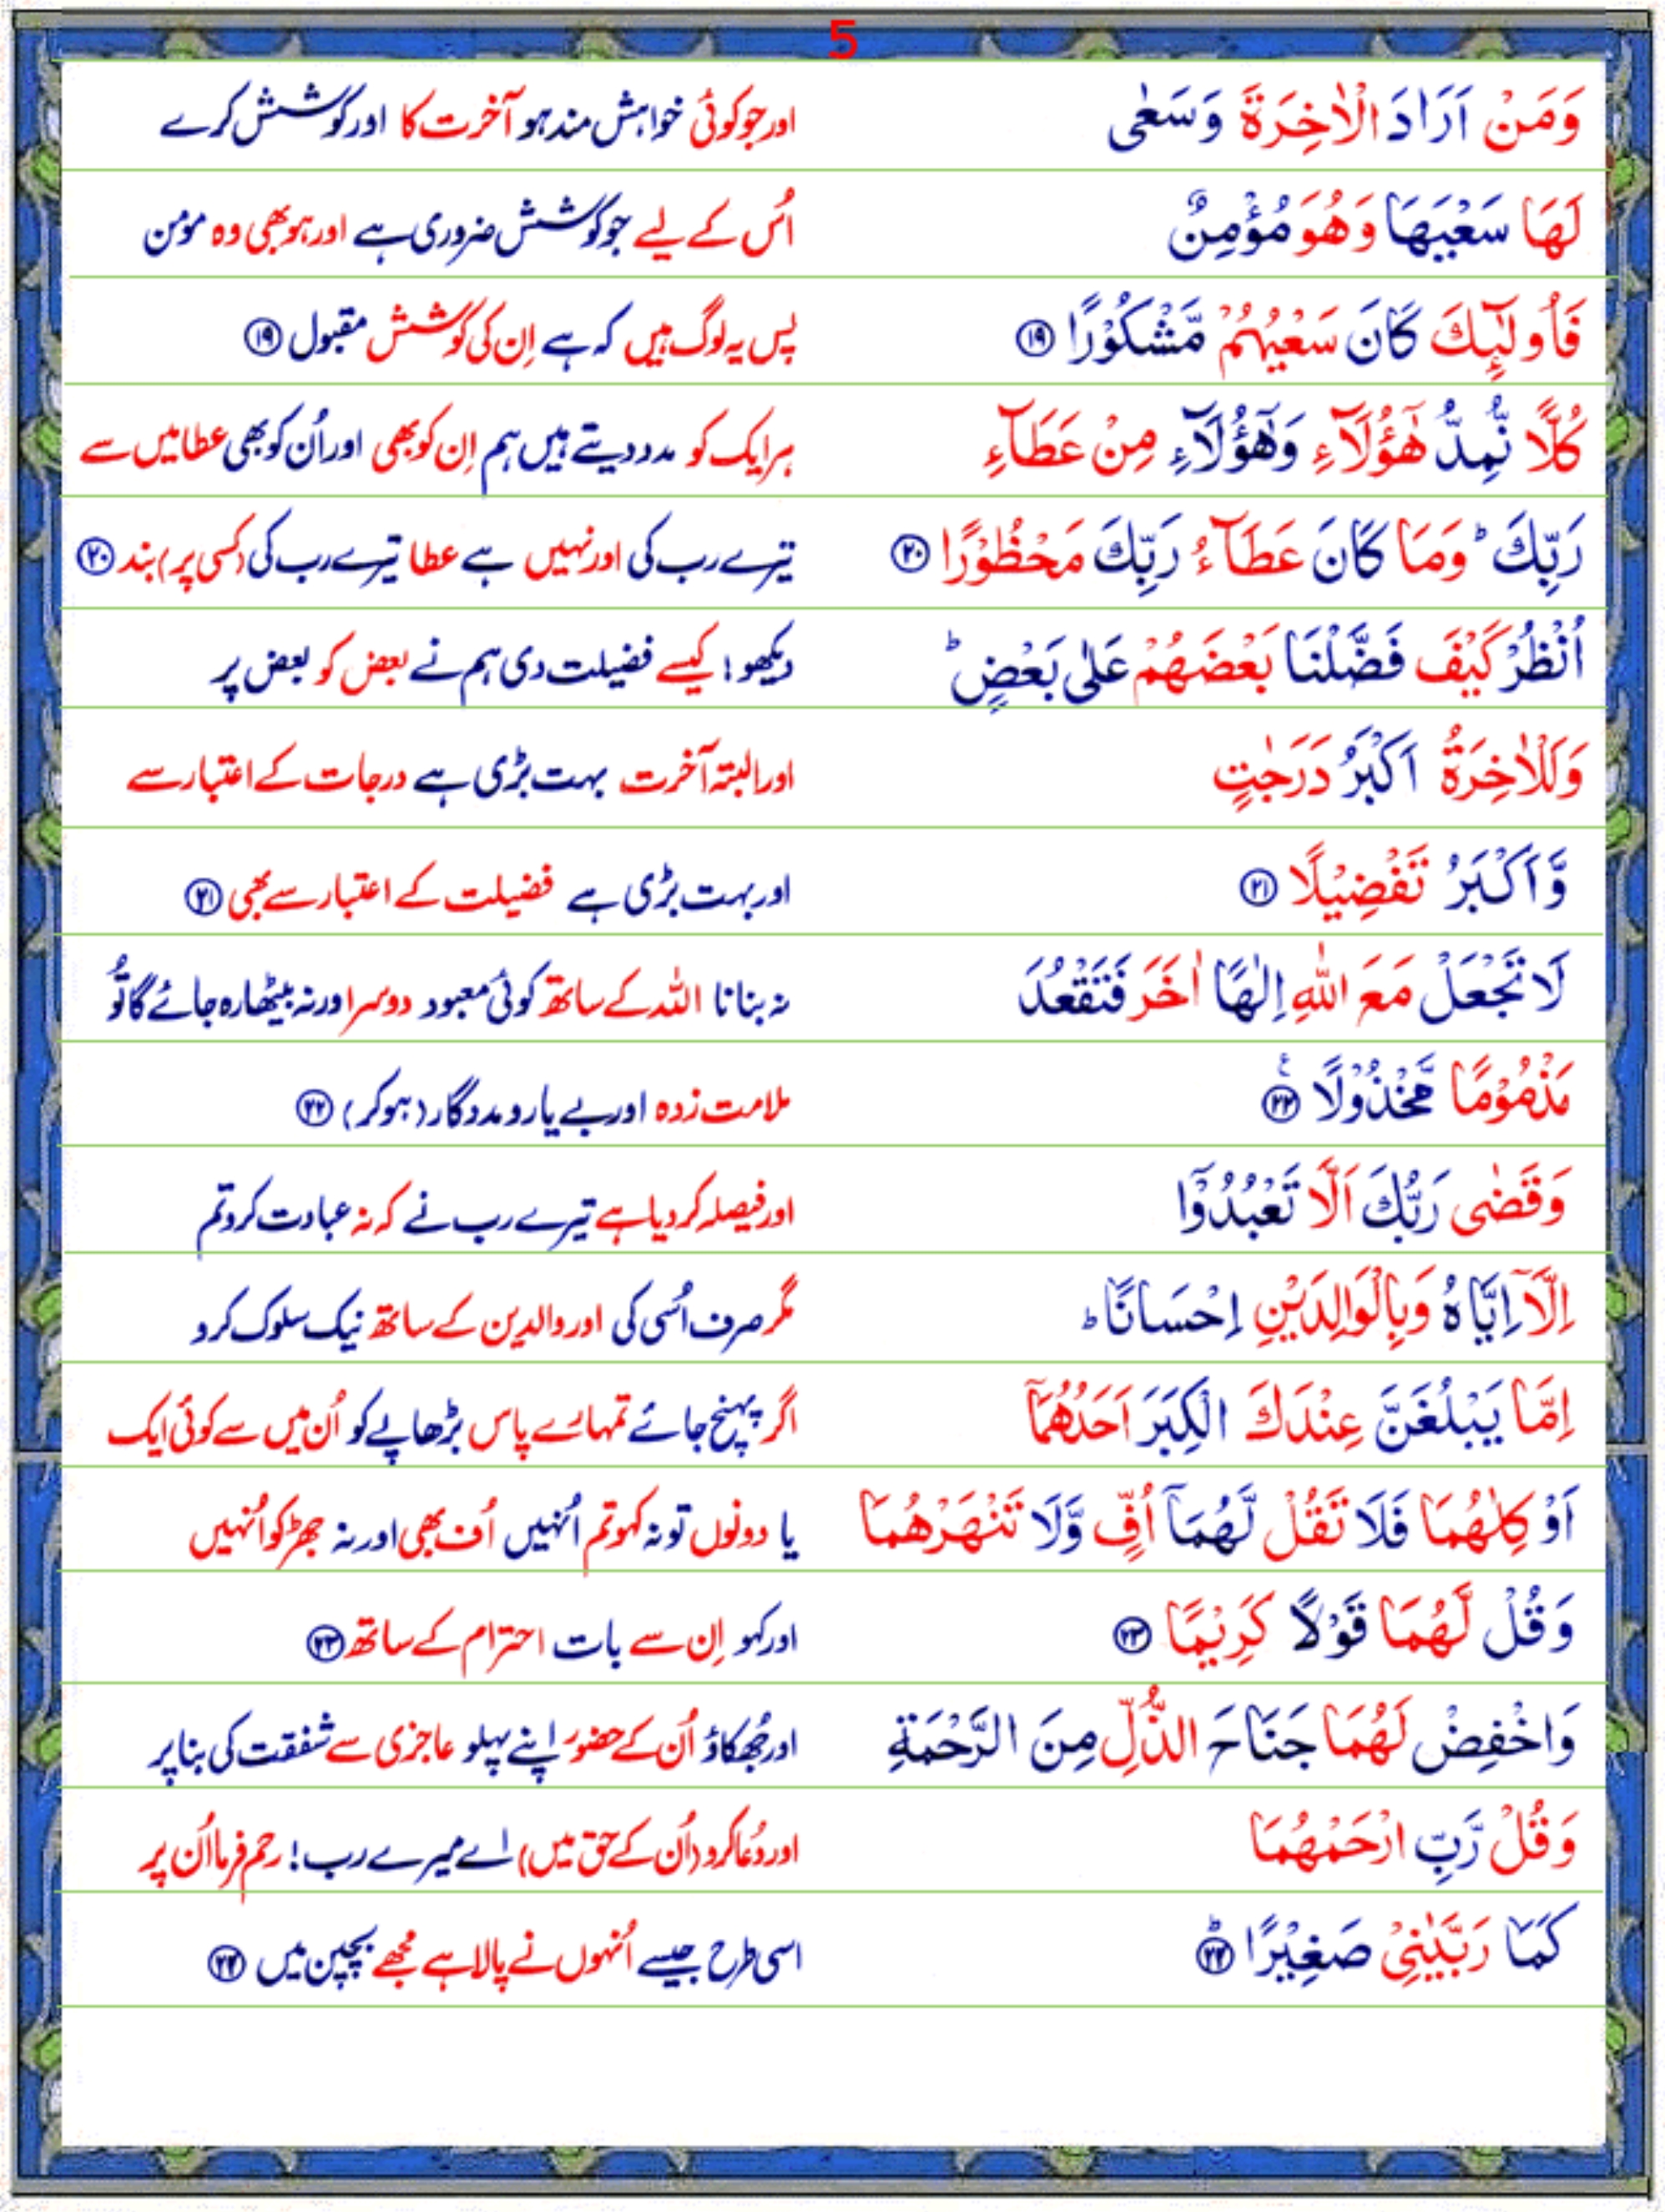 5
وَمَنْ اَرَادَ الْاٰخِرَةَ وَسَعٰى اور جو کوئی خواہش مند ہو آخرت کا اور کوشش کرے
لَهَا سَعْيَهَا وَهُوَ مُؤْمِنٌ اُس کے لیے جو کوشش ضروری ہے اور ہو بھی وہ مومن
فَاُولٰٓئِكَ كَانَ سَعْيُهُمْ مَّشْكُوْرًا ⑲ پس یہ لوگ ہیں کہ ہے اِن کی کوشش مقبول ⑲
كُلًّا نُّمِدُّ هٰٓؤُلَآءِ وَهٰٓؤُلَآءِ مِنْ عَطَآءِ ہر ایک کو مدد دیتے ہیں ہم اِن کو بھی اور اُن کو بھی عطا میں سے
رَبِّكَ ؕ وَمَا كَانَ عَطَآءُ رَبِّكَ مَحْظُوْرًا ⑳ تیرے رب کی اور نہیں ہے عطا تیرے رب کی (کسی پر) بند ⑳
اُنْظُرْ كَيْفَ فَضَّلْنَا بَعْضَهُمْ عَلٰى بَعْضٍ ؕ دیکھو! کیسے فضیلت دی ہم نے بعض کو بعض پر
وَلَلْاٰخِرَةُ اَكْبَرُ دَرَجٰتٍ اور البتہ آخرت بہت بڑی ہے درجات کے اعتبار سے
وَّاَكْبَرُ تَفْضِيْلًا ㉑ اور بہت بڑی ہے فضیلت کے اعتبار سے بھی ㉑
لَا تَجْعَلْ مَعَ اللّٰهِ اِلٰهًا اٰخَرَ فَتَقْعُدَ نہ بنانا اللہ کے ساتھ کوئی معبود دوسرا ورنہ بیٹھا رہ جائے گا تُو
مَذْمُوْمًا مَّخْذُوْلًا ㉒ ع ملامت زدہ اور بے یارو مددگار (ہو کر) ㉒
وَقَضٰى رَبُّكَ اَلَّا تَعْبُدُوْٓا اور فیصلہ کر دیا ہے تیرے رب نے کہ نہ عبادت کرو تم
اِلَّآ اِيَّاهُ وَبِالْوَالِدَيْنِ اِحْسَانًا ؕ مگر صرف اُسی کی اور والدین کے ساتھ نیک سلوک کرو
اِمَّا يَبْلُغَنَّ عِنْدَكَ الْكِبَرَ اَحَدُهُمَآ اگر پہنچ جائے تمہارے پاس بڑھاپے کو اُن میں سے کوئی ایک
اَوْ كِلٰهُمَا فَلَا تَقُلْ لَّهُمَآ اُفٍّ وَّلَا تَنْهَرْهُمَا یا دونوں تو نہ کہو تم اُنہیں اُف بھی اور نہ جھڑکو اُنہیں
وَقُلْ لَّهُمَا قَوْلًا كَرِيْمًا ㉓ اور کہو اِن سے بات احترام کے ساتھ ㉓
وَاخْفِضْ لَهُمَا جَنَاحَ الذُّلِّ مِنَ الرَّحْمَةِ اور جُھکاؤ اُن کے حضور اپنے پہلو عاجزی سے شفقت کی بنا پر
وَقُلْ رَّبِّ ارْحَمْهُمَا اور دُعا کرو (اُن کے حق میں) اے میرے رب! رحم فرما اُن پر
كَمَا رَبَّيٰنِيْ صَغِيْرًا ㉔ؕ اسی طرح جیسے اُنہوں نے پالا ہے مجھے بچپن میں ㉔